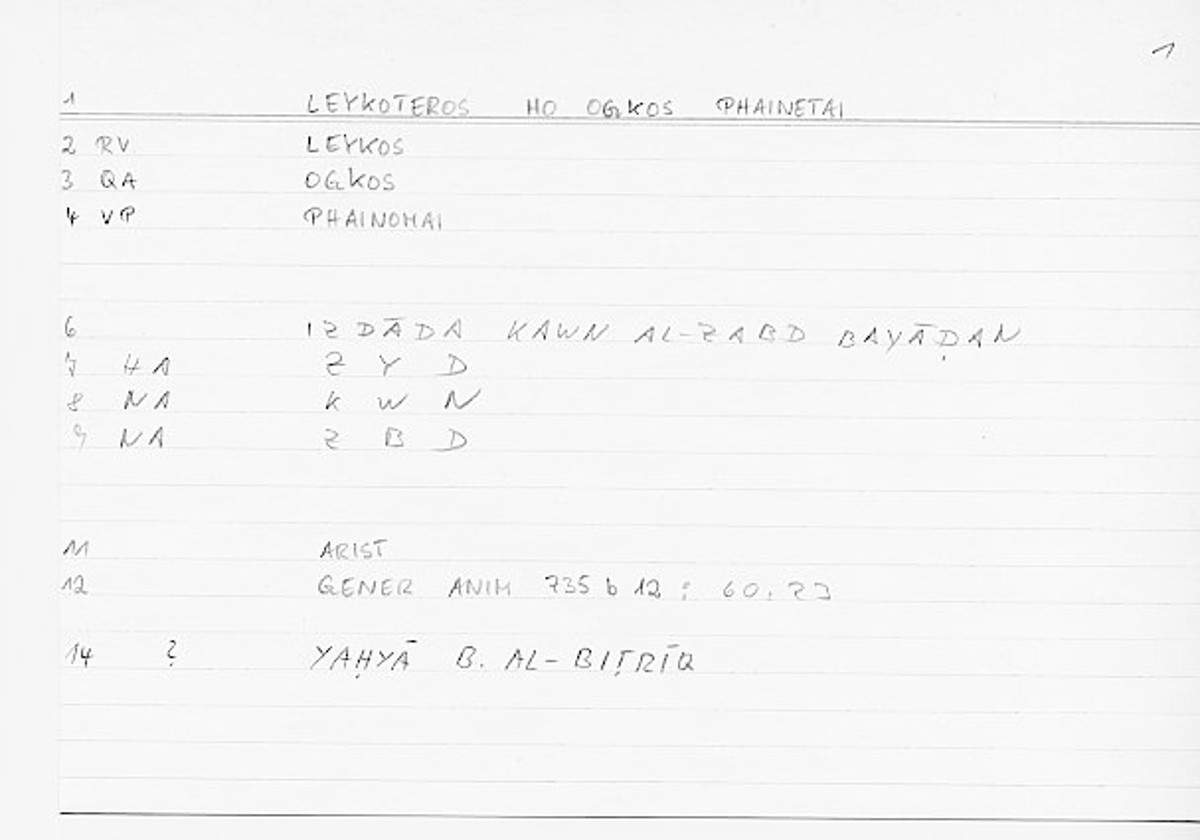 1
1 LEYKOTEROS HO OGKOS PHAINETAI
2 RV LEYKOS
3 QA OGKOS
4 VP PHAINOMAI
6 IZDĀDA KAWN AL-ZABD BAYĀḌAN
7 HA Z Y D
8 NA K W N
9 NA Z B D
11 ARIST
12 GENER ANIM 735 b 12 : 60.23
14 ? YAḤYĀ B. AL-BIṬRĪQ